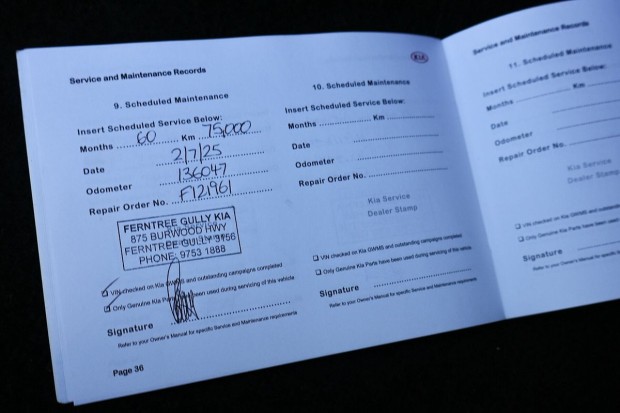 Service and Maintenance Records
9. Scheduled Maintenance
Insert Scheduled Service Below:
Months 60 Km 75,000
Date 2/7/25
Odometer 136047
Repair Order No. F121961
FERNTREE GULLY KIA
875 BURWOOD HWY
FERNTREE GULLY 3156
PHONE: 9753 1888
VIN checked on Kia GWMS and outstanding campaigns completed
Only Genuine Kia Parts have been used during servicing of this vehicle
Signature
Refer to your Owner's Manual for specific Service and Maintenance requirements
Page 36
KIA
10. Scheduled Maintenance
Insert Scheduled Service Below:
Months Km
Date
Odometer
Repair Order No.
Kia Service
Dealer Stamp
VIN checked on Kia GWMS and outstanding campaigns completed
Only Genuine Kia Parts have been used during servicing of this vehicle
Signature
Refer to your Owner's Manual for specific Service and Maintenance requirements
Service and Maintenance Records
11. Scheduled Maintenance
Insert Scheduled Service Below:
Months Km
Date
Odometer
Repair Order No.
Kia Service
Dealer Stamp
VIN checked on Kia GWMS and outstanding
Only Genuine Kia Parts have been used during
Signature
Refer to your Owner's Manual for specific Service and